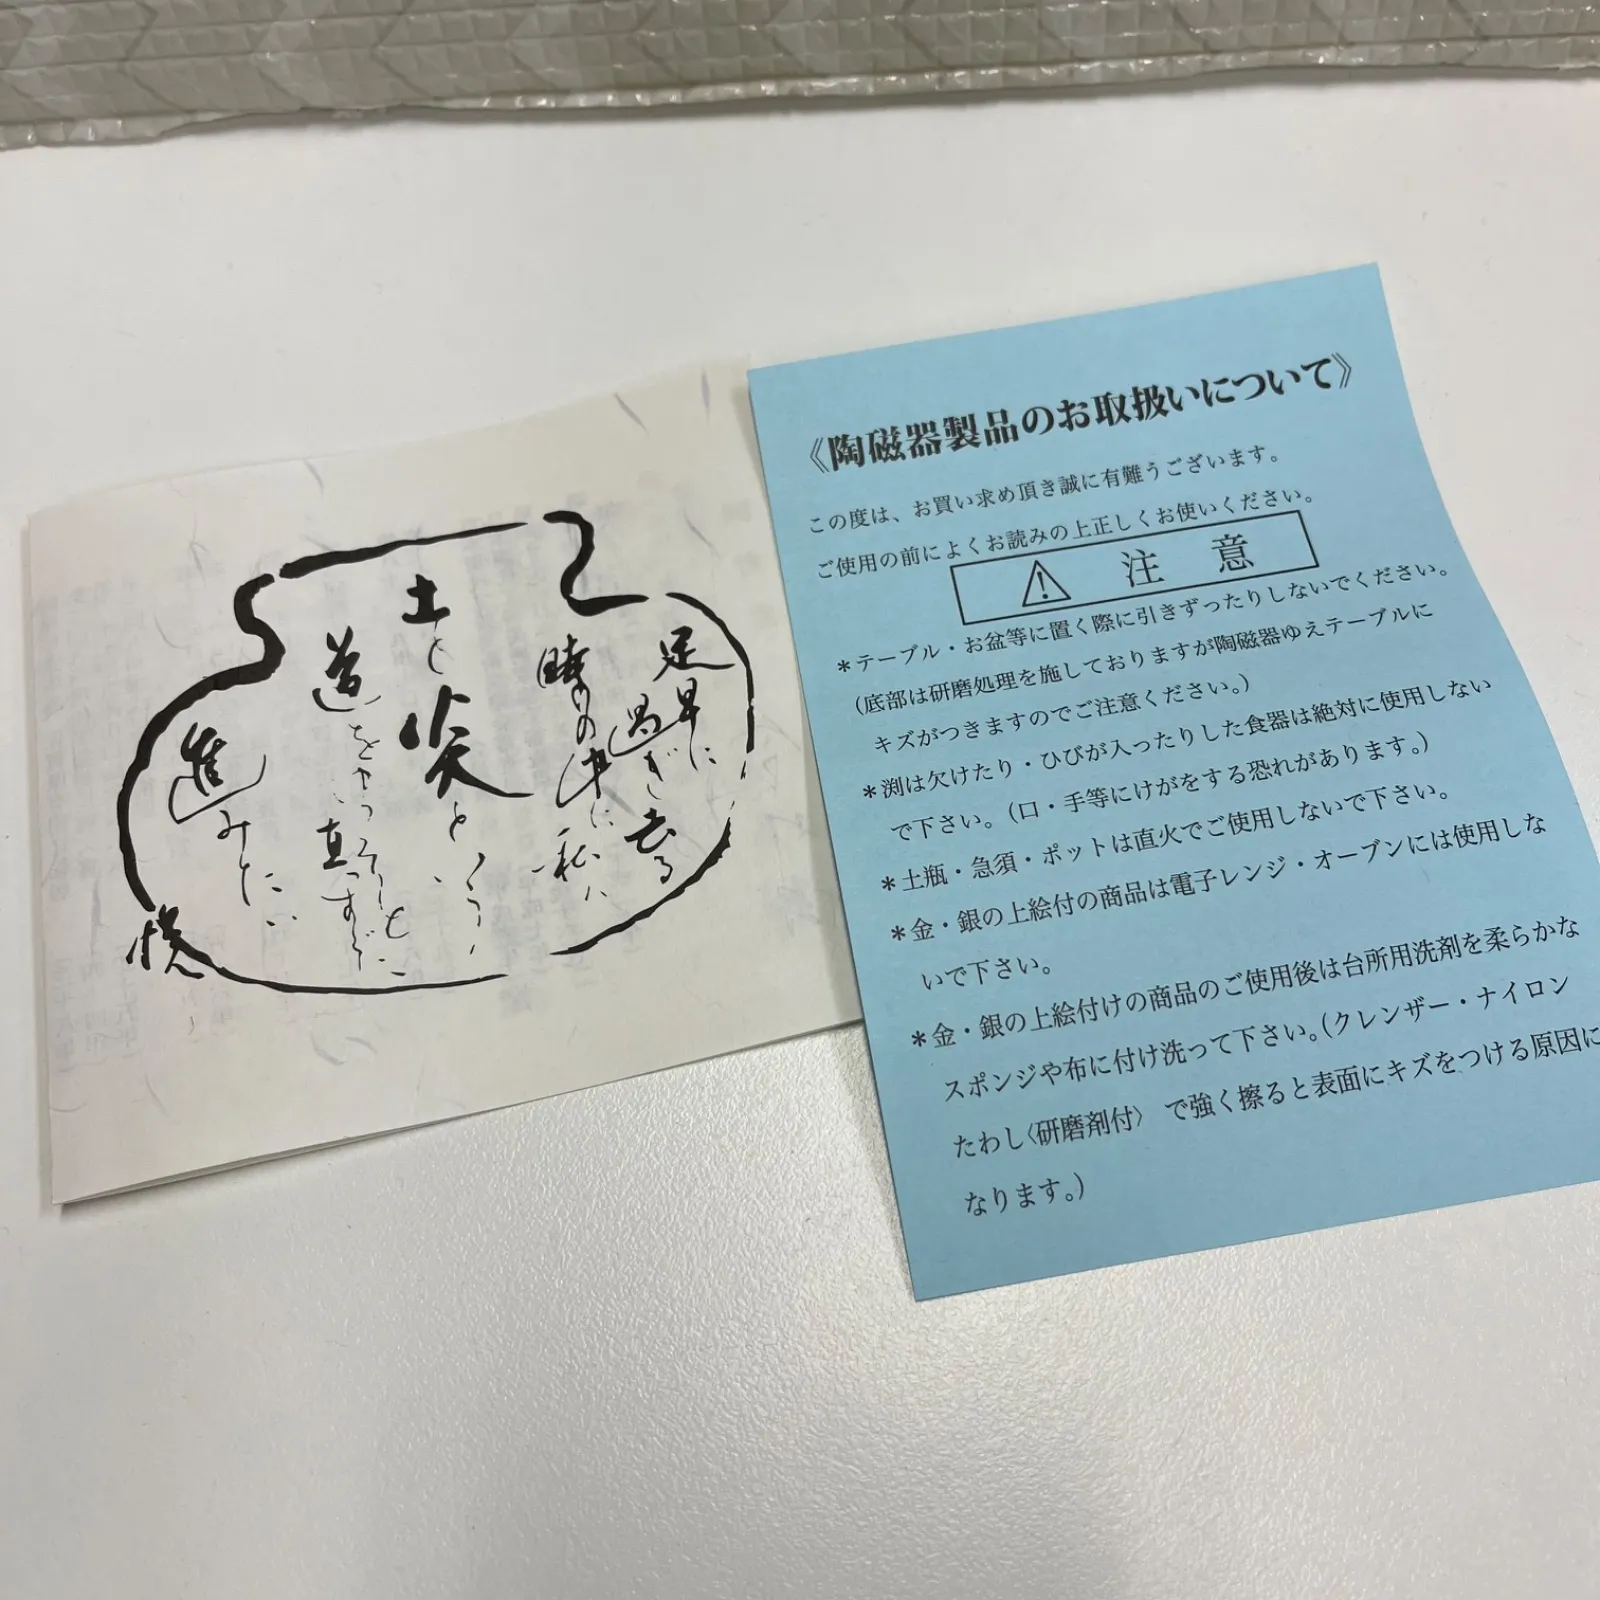 足早に
過ぎ去る
時の中に私は
土と炎という
道をさっそうと
真っすぐに
進みたい
《陶磁器製品のお取扱いについて》
この度は、お買い求め頂き誠に有難うございます。
ご使用の前によくお読みの上正しくお使いください。
注 意
*テーブル・お盆等に置く際に引きずったりしないでください。
(底部は研磨処理を施しておりますが陶磁器ゆえテーブルに
キズがつきますのでご注意ください。)
*渕は欠けたり・ひびが入ったりした食器は絶対に使用しない
で下さい。(口・手等にけがをする恐れがあります。)
*土瓶・急須・ポットは直火でご使用しないで下さい。
*金・銀の上絵付の商品は電子レンジ・オーブンには使用しな
いで下さい。
*金・銀の上絵付けの商品のご使用後は台所用洗剤を柔らかな
スポンジや布に付け洗って下さい。(クレンザー・ナイロン
たわし〈研磨剤付〉 で強く擦ると表面にキズをつける原因に
なります。)